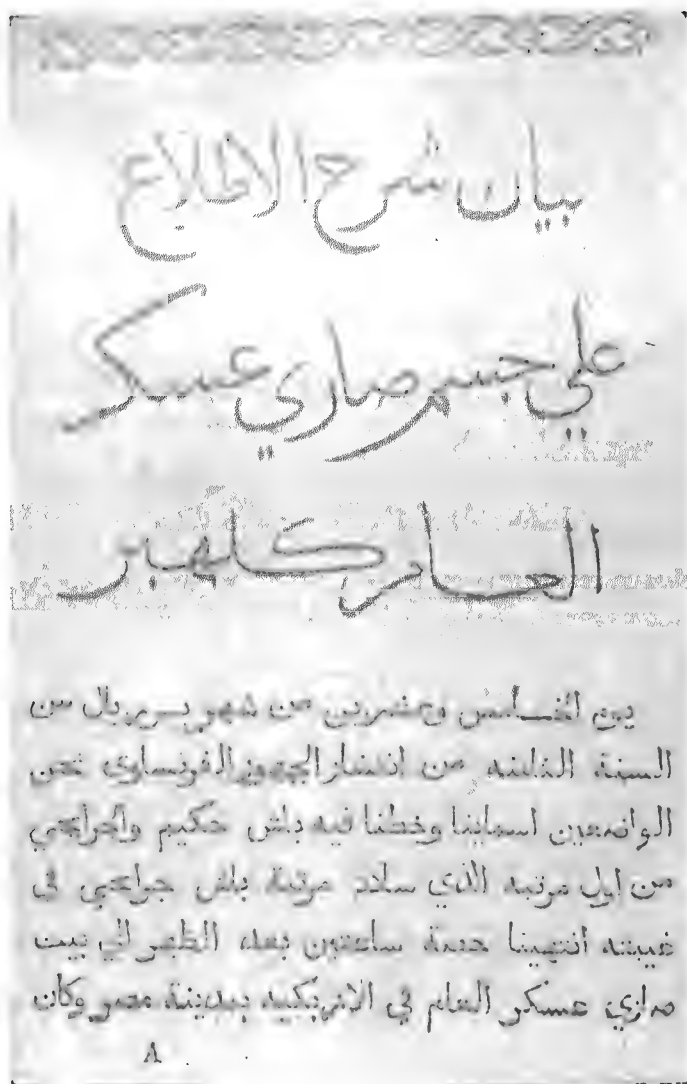 بيان شرح الاطلاع
علي جسم صاري عسكر
العام كلهبر
يوم الخامس وعشرين من شهر بريريال من
السنة الثامنه من انتشار الجمهور الفرنساوي نحن
الواضعين اسماينا وخطنا فيه باش حكيم والجرايحي
من اول مرتبه الذي سادد مرتبة باش جرايحي في
غيبته انتهينا حصة ساعتين بعد الظهر الي بيت
صاري عسكر العام في الازبكيه بمدينة مصر وكان
٨